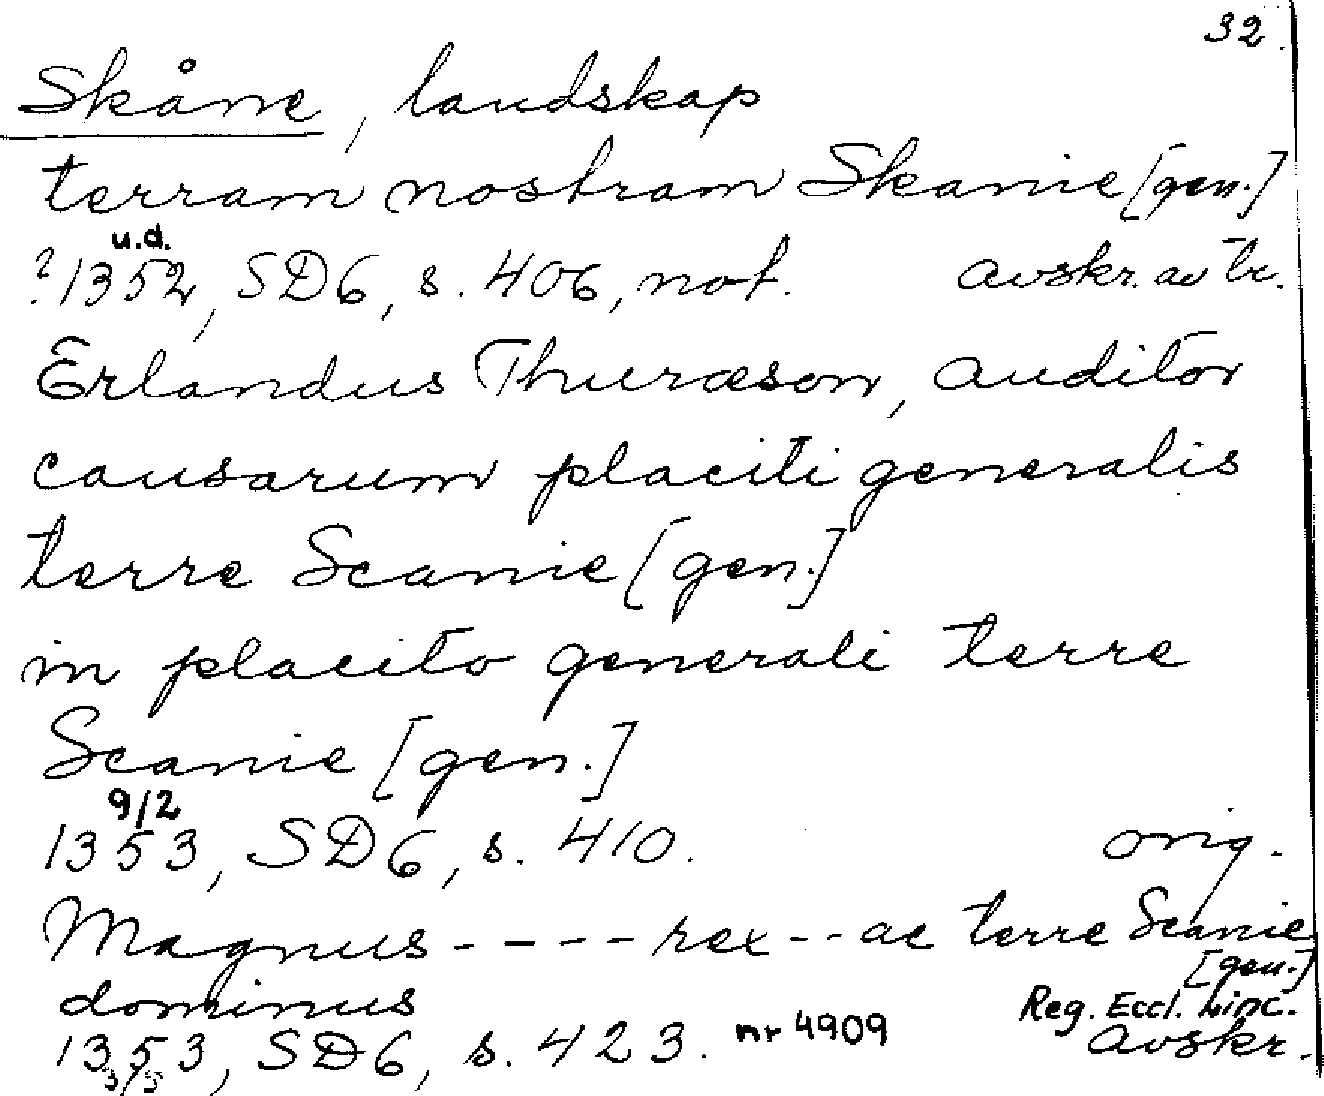 32.
Skåne, landskap
terram nostram Skanie [gen.]
u.d.
? 1352, SD6, s. 406, not. avskr. av tr.
Erlandus Thuræson, auditor
causarum placiti generalis
terre Scanie [gen.]
in placito generali terre
Scanie [gen.]
9/2
1353, SD6, s. 410. orig.
Magnus - - - - rex - - ac terre Scanie
[gen.]
dominus Reg. Eccl. Linc.
1353, SD6, s. 423. nr 4909 avskr.
3/5